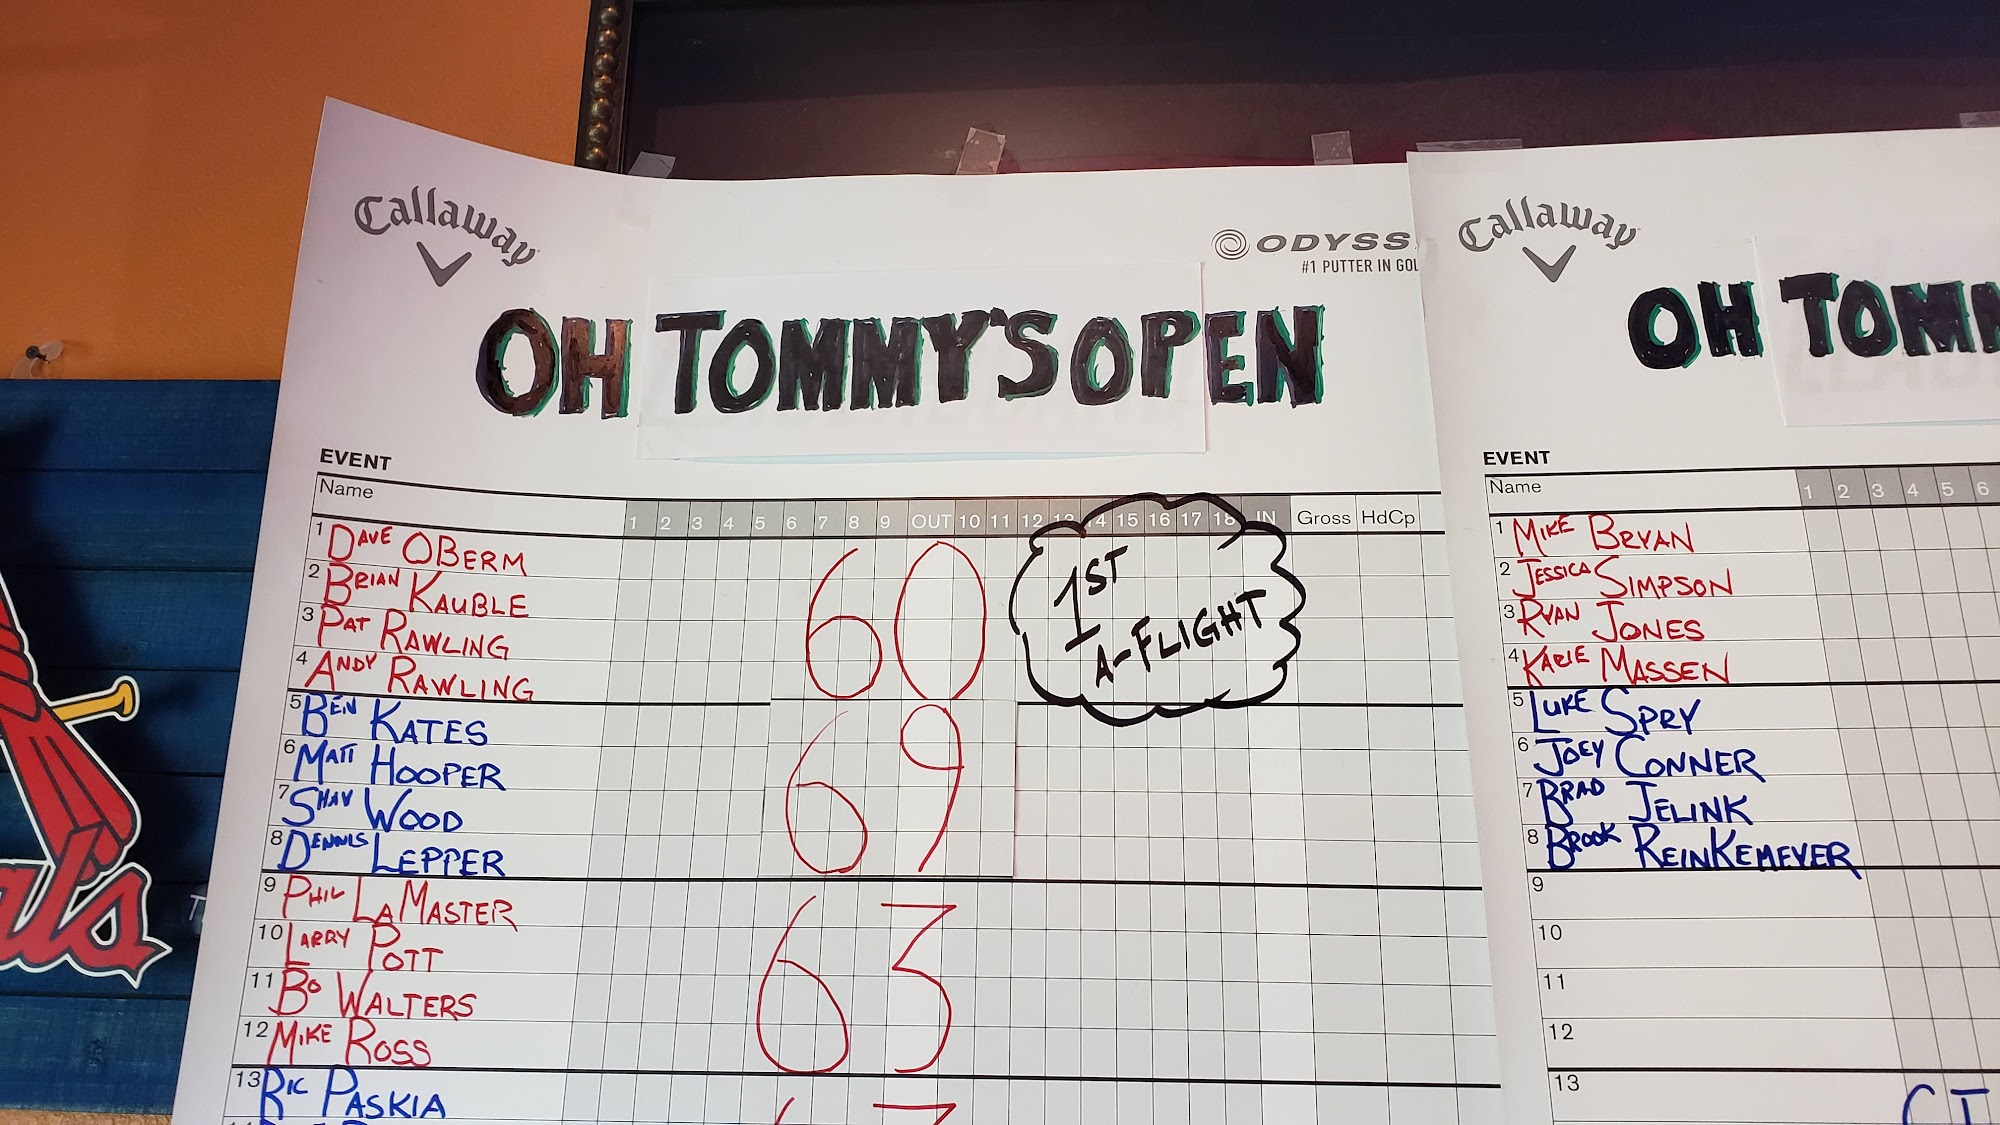 Callaway
ODYSS
#1 PUTTER IN GOL
OH TOMMY'S OPEN
EVENT
Name 1 2 3 4 5 6 7 8 9 OUT 10 11 12 13 14 15 16 17 18 IN Gross HdCp
1 DAVE OBERM
2 BRIAN KAUBLE
3 PAT RAWLING
4 ANDY RAWLING
60
1ST
A-FLIGHT
5 BEN KATES
6 MATT HOOPER
7 SHAV WOOD
8 DENNIS LEPPER
69
9 PHIL LAMASTER
10 LARRY POTT
11 BO WALTERS
12 MIKE ROSS
63
13 RIC PASKIA
Callaway
OH TOMM
EVENT
Name 1 2 3 4 5 6
1 MIKE BRYAN
2 JESSICA SIMPSON
3 RYAN JONES
4 KARIE MASSEN
5 LUKE SPRY
6 JOEY CONNER
7 BRAD JELINK
8 BROOK REINKEMEYER
9
10
11
12
13
al's